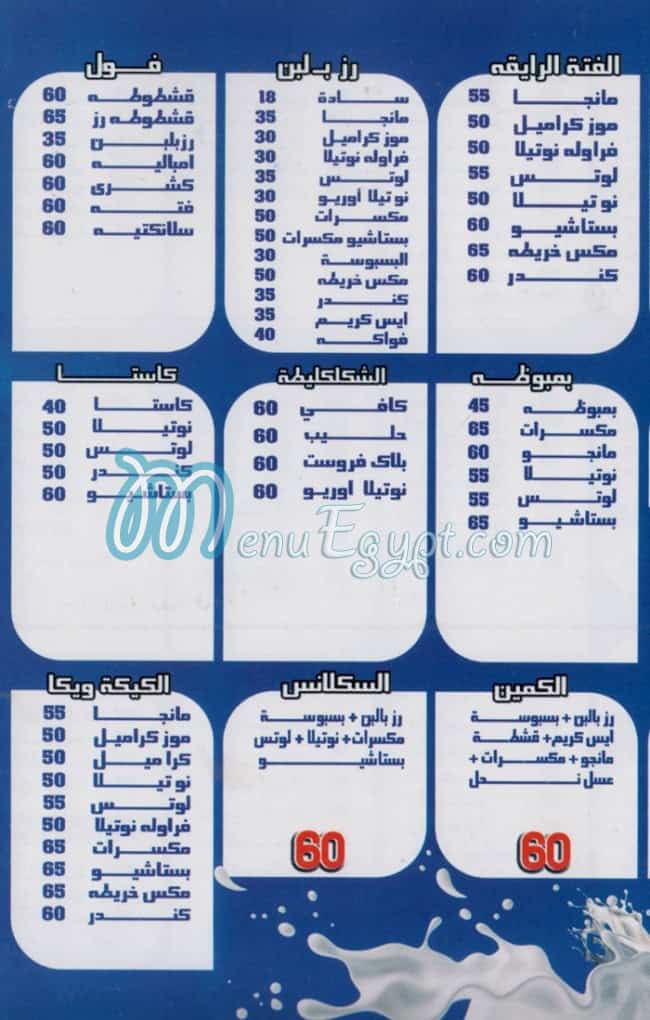 الفتة الرايقه
مانجا 55
موز كراميل 50
فراوله نوتيلا 50
لوتس 55
نوتيلا 50
بستاشيو 60
مكس خريطه 65
كندر 60
رز بـلبن
سادة 18
مانجا 35
موز كراميل 30
فراوله نوتيلا 30
لوتس 35
نوتيلا أوريو 30
مكسرات 50
بستاشيو مكسرات 50
البسبوسة 30
مكس خريطه 50
كندر 35
ايس كريم 35
فواكه 40
فول
قشطوطه 60
قشطوطه رز 65
رزبلبن 35
امباليه 60
كشرى 60
فته 60
سلانكتيه 60
بمبوظه
بمبوظه 45
مكسرات 65
مانجو 60
نوتيلا 55
لوتس 55
بستاشيو 65
الشكلكليطة
كافي 60
حليب 60
بلاك فروست 60
نوتيلا اوريو 60
كاستا
كاستا 40
نوتيلا 50
لوتس 50
كندر 50
بستاشيو 60
MenuEgypt.com
الكمين
رز بالبن + بسبوسة
ايس كريم + قشطة
مانجو + مكسرات +
عسل نحل
60
السكلانس
رز بالبن + بسبوسة
مكسرات + نوتيلا + لوتس
بستاشيو
60
الكيكة ويكا
مانجا 55
موز كراميل 50
كراميل 50
نوتيلا 50
لوتس 55
فراوله نوتيلا 50
مكسرات 65
بستاشيو 65
مكس خريطه 65
كندر 60